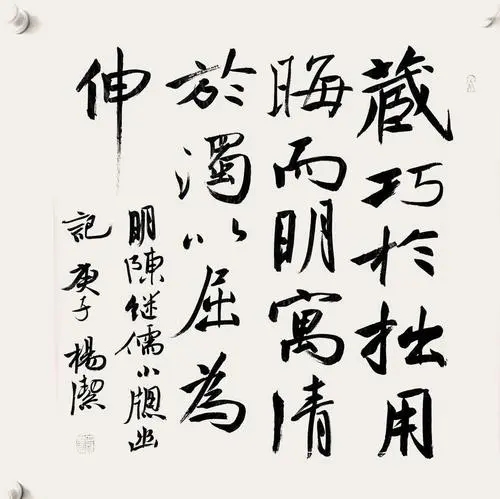 藏巧於拙用
晦而明寓清
於濁以屈為
伸
明陳继儒小牕幽
記 庚子 楊潔